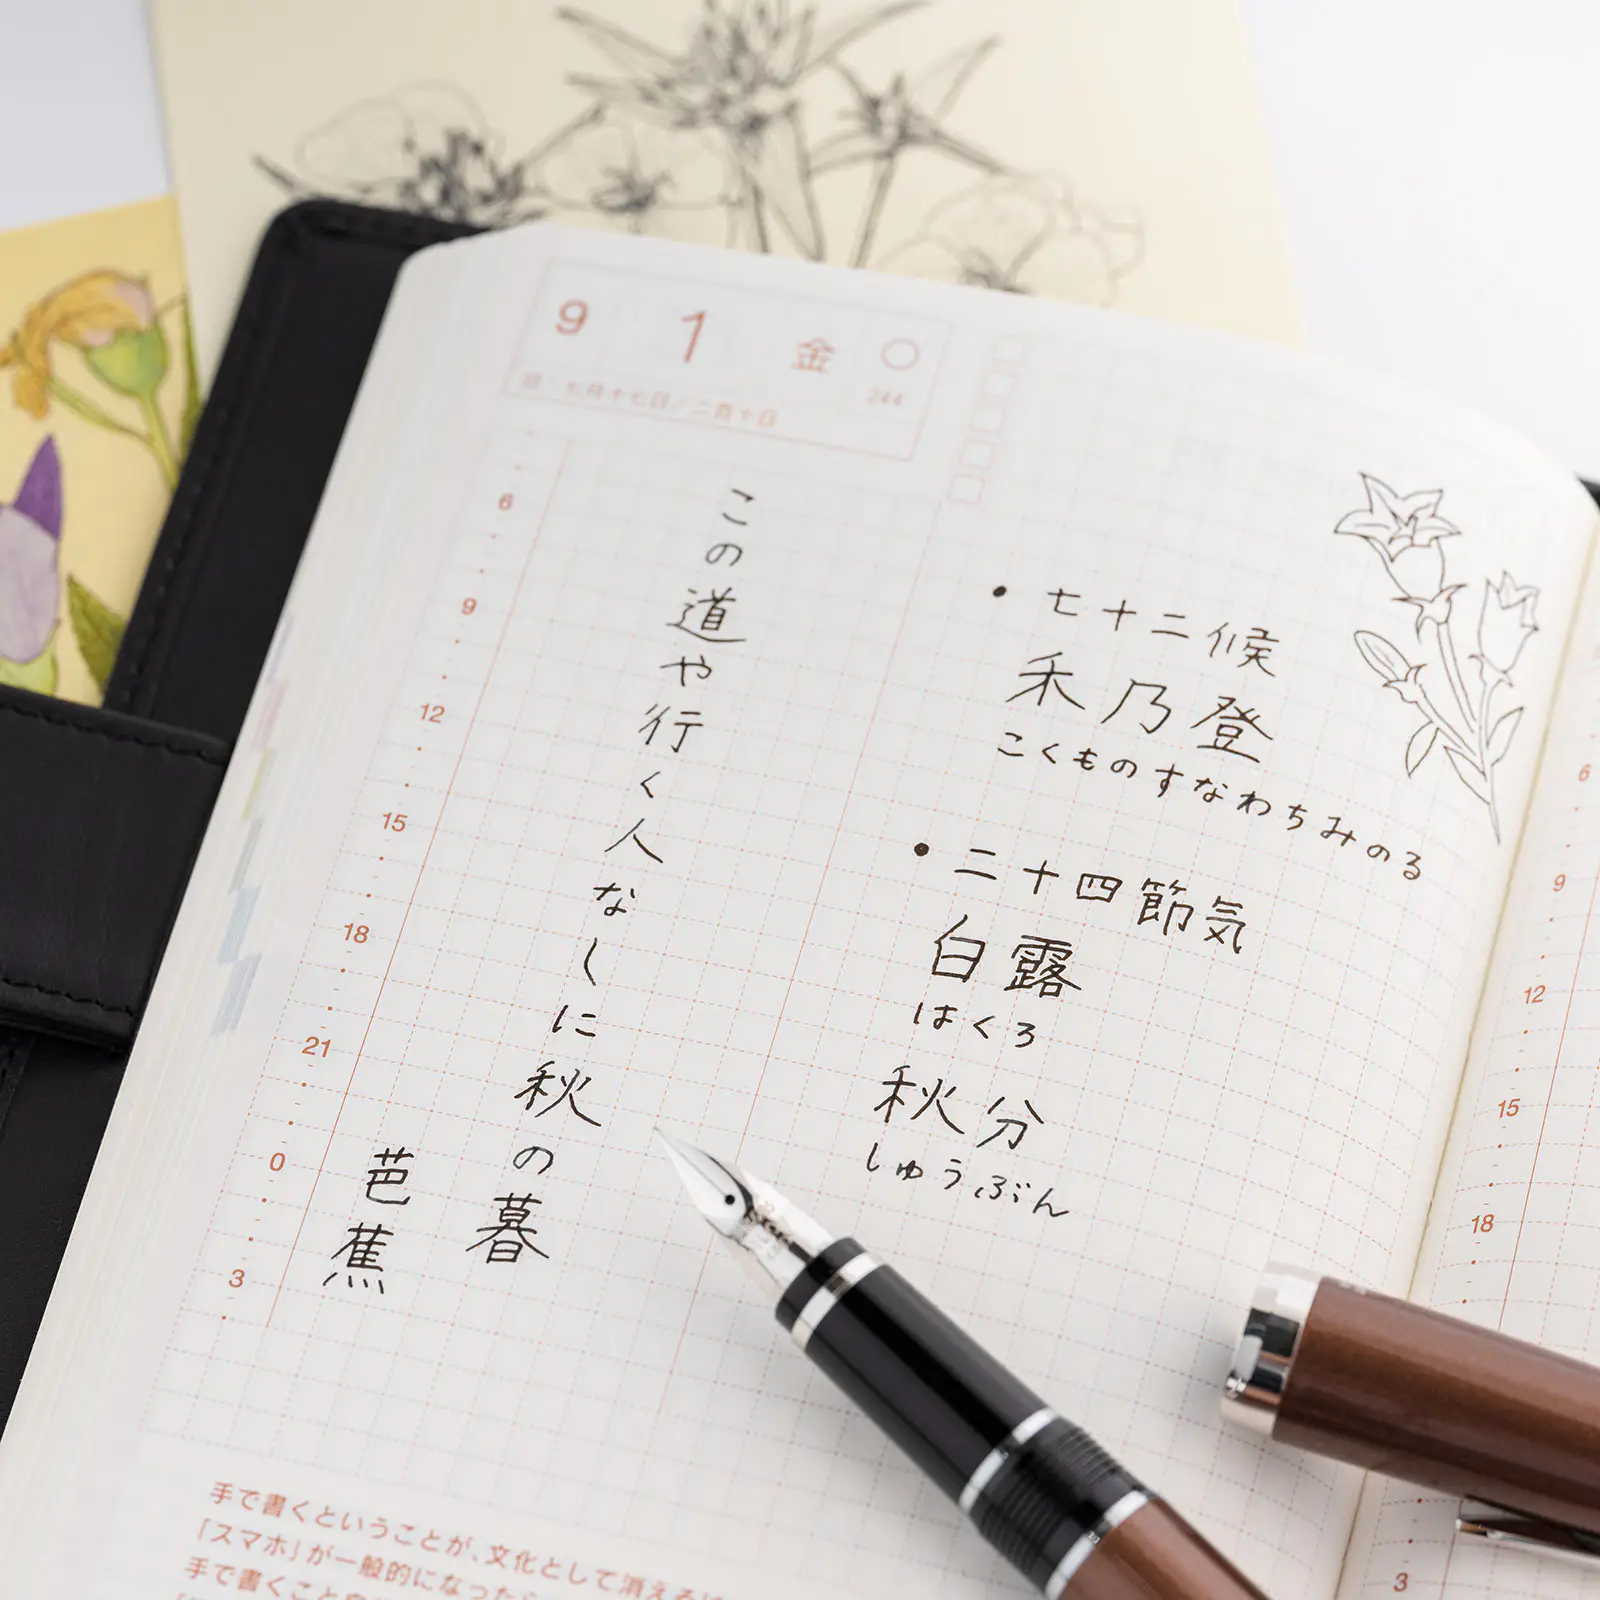 9 1 金 ○
七月十七日/二百十日
244
この道や行く人なしに秋の暮
芭蕉
・七十二候
禾乃登
こくものすなわちみのる
・二十四節気
白露
はくろ
秋分
しゅうぶん
6
9
12
15
18
21
0
3
手で書くということが、文化として消える
「スマホ」が一般的になったら
手で書くこと
6
9
12
15
18
3